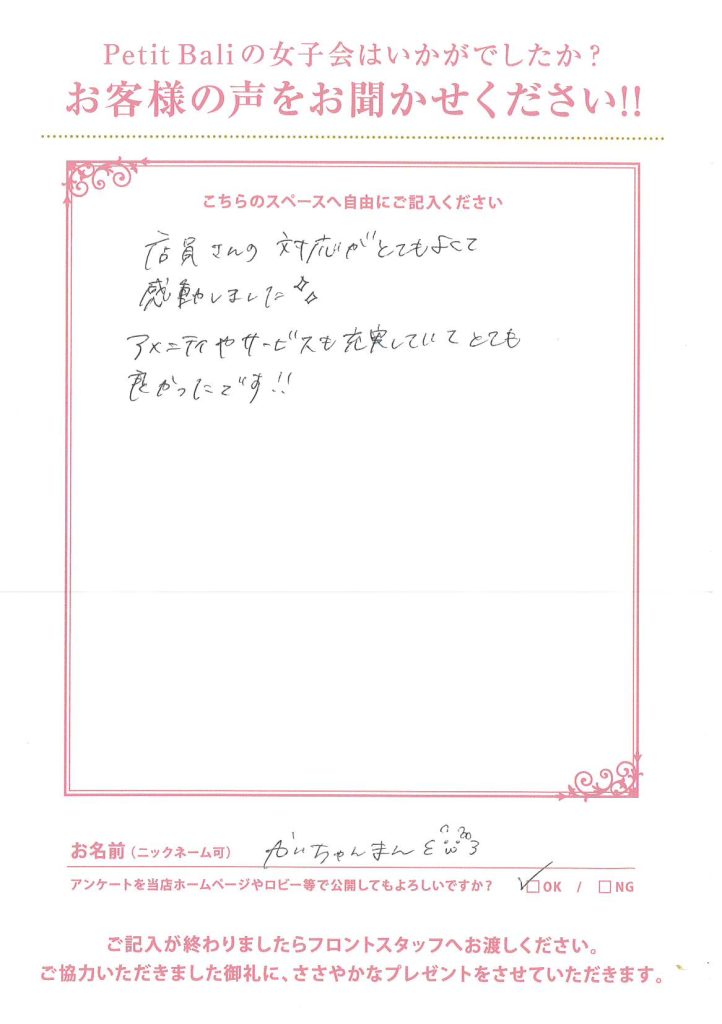 Petit Baliの女子会はいかがでしたか？
お客様の声をお聞かせください!!
こちらのスペースへ自由にご記入ください
店員さんの対応がとてもよくて
感動しました
アメニティやサービスも充実していてとても
良かったです!!
お名前（ニックネーム可） がいちゃんまん
アンケートを当店ホームページやロビー等で公開してもよろしいですか？ ✓□OK / □NG
ご記入が終わりましたらフロントスタッフへお渡しください。
ご協力いただきました御礼に、ささやかなプレゼントをさせていただきます。